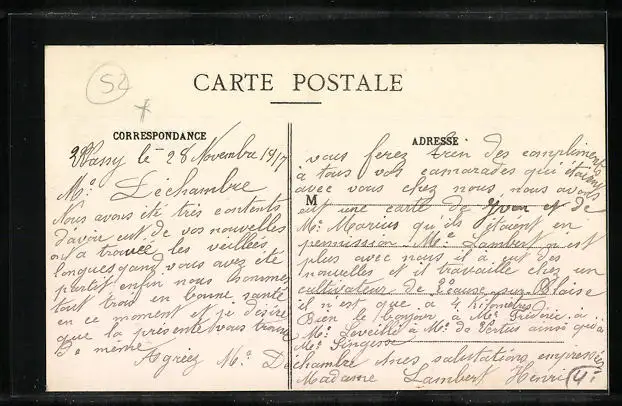 52
CARTE POSTALE
CORRESPONDANCE
Wassy le 28 Novembre 1917
Mr Déchambre
Nous avons été très contents
d'avoir eut de vos nouvelles
on a trouvée les veillées
longues quand vous avez été
partit enfin nous sommes
tout trois en bonne santé
en ce moment et je désire
que la présente vous trouve
de même
Agréez Mr Déchambre mes salutations empressés
Madame Lambert Henri
ADRESSE
M
vous ferez bien des compliments
à tous vos camarades qui étaient
avec vous chez nous, nous avons
eut une carte de Yvon et de
Mr Marius qu'ils étaient en
permission Mr Lambert n'est
plus avec nous il à eut des
nouvelles et il travaille chez un
cultivateur de sur Blaise
il n'est que à 4 Kilmètres
Bien le bonjour à Mr Frédéric à
Mr Leveillé à Mr de Vertus ainsi qu'à
Mr Singesse